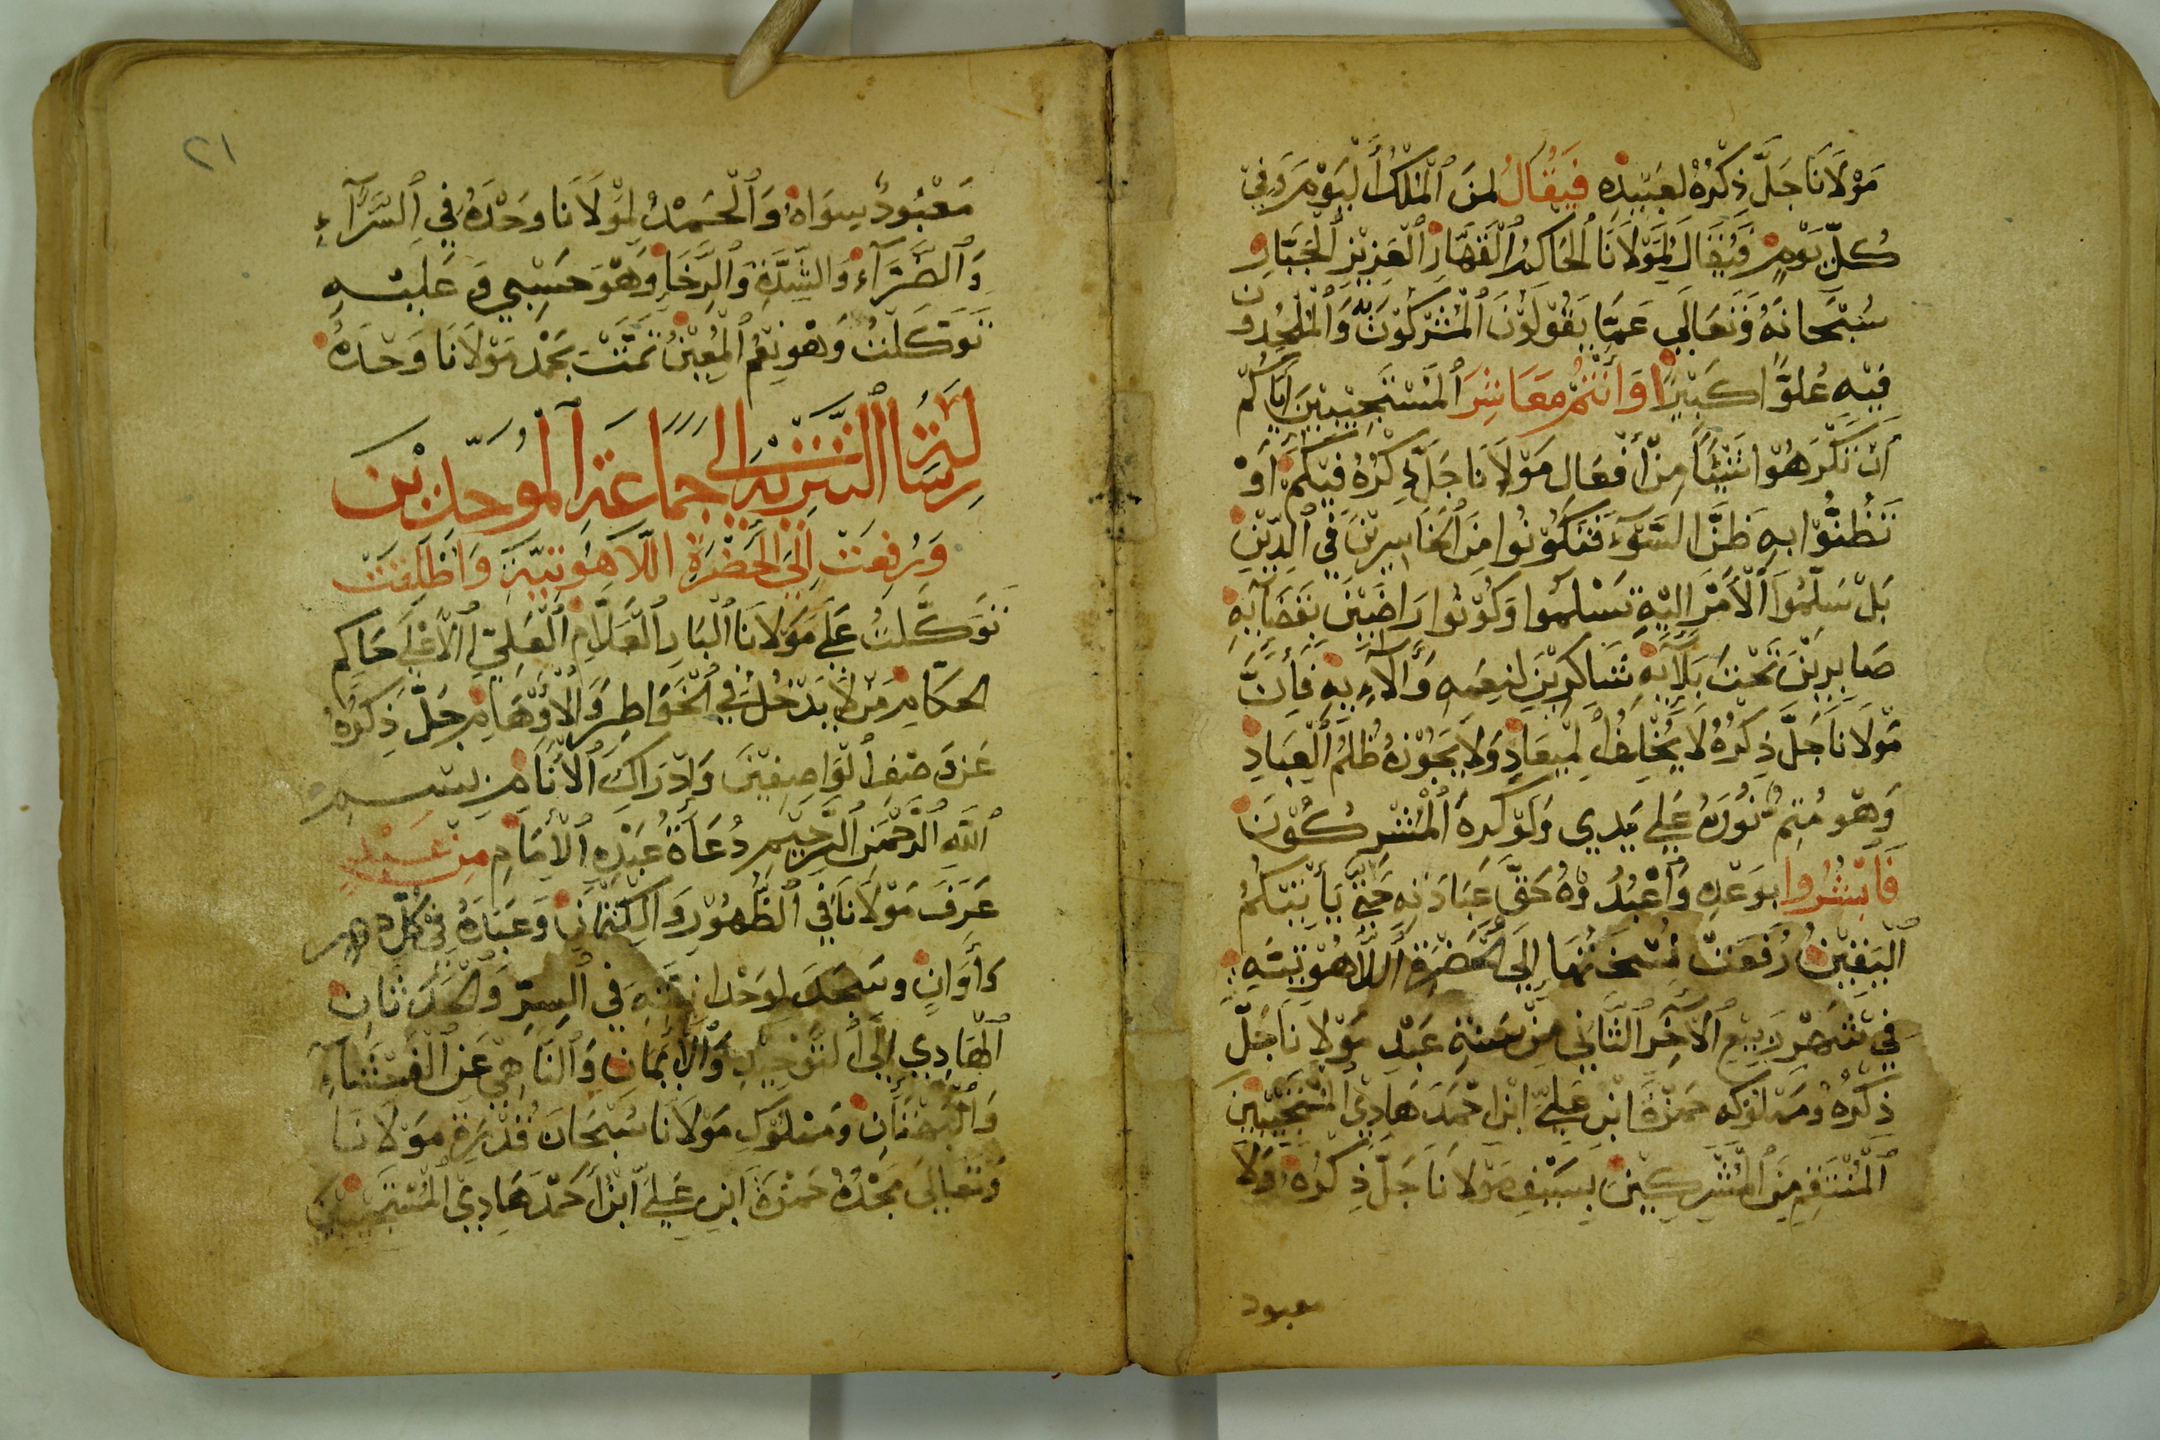 مَوْلَانَا جَلَّ ذِكْرُهُ لعَبيدِه فَيُقَالُ لمنَ ٱلْمُلْكُ ٱلْيَوْمَ وَفِيْ
كُلِّ يَوْمٍ فَيُقَالُ لِمَوْلَانَا ٱلْحَاكِمُ ٱلْقَهَّارِ ٱلْعَزِيْزِ ٱلْجَبَّارِ
سُبْحَانَهُ وَتَعَالَي عَمَّا يَقُوْلُوْنَ ٱلْمُشْرِكُوْنَ وَٱلْمُلْحِدُون
فيْهِ عُلوًّا كَبِيْرًا وَأَنْتُمْ مَعَاشِرَ ٱلْمُسْتَجِيْبِيْنَ ايَّاكُمْ
انْ تَكْرَهُوْا شَيْئًا مِنْ أَفْعَال مَوْلَانَا جَلَّ ذِكْرُهُ فيْكمْ أَوْ
تَظُنُّوْا بهِ ظَنَّ السَّوْءِ فَتَكُوْنُوا مِنَ ٱلْخَاسِرِيْنَ فِي ٱلدِّيْنِ
بَلْ سَلِّمُوا ٱلْأَمْرَ اليْهِ تَسْلموا وَكُوْنُوا رَاضِيْنَ بقَضَآئهِ
صَابِرِيْنَ تَحْتَ بَلَآئِهِ شَاكِرِيْنَ لنِعَمِهِ وَٱلَآءِ بهِ فَأِنَّ
مَوْلَانَا جَلَّ ذِكْرُهُ لَا يُخْلِفُ ٱلْمِيْعَادِ وَلَا يَجُوْزهُ ظُلْمُ ٱلْعِبَادِ
وَهْوَ مُتِمُّ نُوْرَهُ عَلَي يَدِي وَلَوْ كَرِهَ ٱلْمُشْركُوْنَ
فَابْشُرُوا بوَعْدِهِ وَٱعْبُدُوْهُ حَقَّ عِبَادَتِهِ حَتَّي يَأْتِيَكُمُ
ٱلْيَقِيْنُ رُفعَتْ نُسْخَتُهَا إِلَي ٱلْحَضْرَةِ ٱللَّاهُوْتيّهِ
فيْ شَهْرِ رَبِيْعِ ٱلْآخِرِ ٱلثَّانِي مِنْ سَنَةِ عَبْدِ مَوْلَانَا جَلَّ
ذِكْرُهُ وَمَمْلُوْكِهِ حَمْزَةَ ابْنِ عَلِيِّ ابْنِ احْمَدَ هَادِيْ ٱلْمُسْتَجِيْبِيْنَ
ٱلْمُنْتَقِمِ مِنَ ٱلْمُشْرِكِيْنَ بِسَيْفِ مَوْلَانَا جَلَّ ذِكْرُهُ وَلَا
معبود
٢١
مَعْبُودٌ سِوَاهُ وَٱلْحَمْدُ لِمَوْلَانَا وحْدَهُ فِي ٱلسَّرَّآءِ
وَٱلضَّرَّآءِ وَالشِّدَّةِ وَٱلرَّخَاءِ وَهْوَ حَسْبِي وَعَليْهِ
تَوَكَّلْتُ وَهْوَ نِعْمَ ٱلْمُعِيْنُ تَمَّتْ بحَمْدِ مَوْلَانَا وَحْدَهُ
رِسَالَةُ التَّنْزِيْهِ إلى جَمَاعَةِ ٱلْمُوَحِّدِيْنَ
وَرُفِعَتْ إِلَي الحَضْرَةِ اللَّاهُوتيَّةِ وَاطْلِقَتْ
تَوَكَّلْتُ عَلَي مَوْلَانَا ٱلْبَارِ ٱلْعَلَّامِ ٱلْعَلِيِّ ٱلْاعْلَي حَاكِمِ
الحكّامِ مَنْ لَا يَدْخُلُ فِي ٱلْخَوَاطِرِ وَٱلْأَوْهَامِ جَلَّ ذِكْرُهُ
عَنْ وَصْفِ ٱلْوَاصِفِيْنَ وَادْرَاكِ ٱلْأَنَامِ بسْـــمِ
ٱللهِ ٱلرَّحْمٰنِ ٱلرَّحِيْمِ دُعَاةُ عَبْدِهِ ٱلْأِمَامِ مِنْ عَبْدٍ
عَرَفَ مَوْلَانَا فِي ٱلظُّهُوْرِ وَالكِتْمَانِ وَعَبَدَهُ فِيْ كُلِّ دهر
وَأَوَانٍ وسَجَدَ لوَحْدَانِيَّتِهِ فِي السِرِّ وَٱلْحَدَثَانِ
ٱلْهَادِي إِلَي ٱلتَّوْحِيْدِ وَٱلْأِيْمَانِ وَٱلنَّاهِيْ عَنِ ٱلْفَحْشَآءِ
وَٱلْبُهْتَانِ وَمَمْلُوْكِ مَوْلَانَا سُبْحَانَ قُدْرَةِ مَوْلَانَا
وَتَعَالَي مَجْدُهُ حَمْزَةَ ابْنِ عَلِيِّ ابْنِ أَحْمَدَ هَادِيْ المُسْتَجِيْبِيْنَ